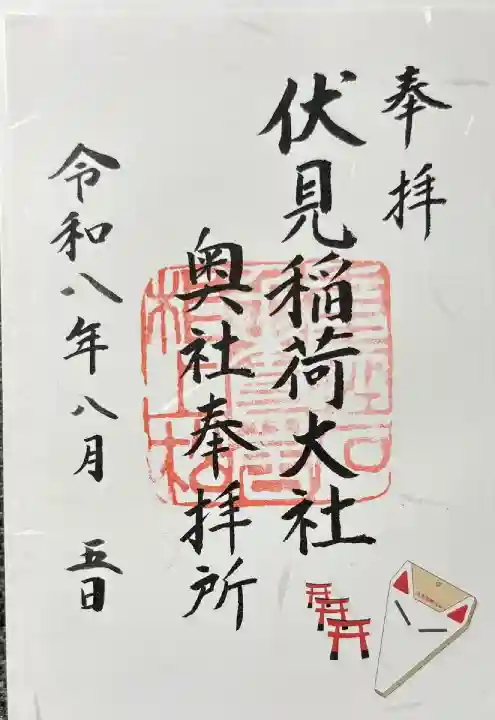 奉拝
伏見稲荷大社
奥社奉拝所
令和八年八月五日